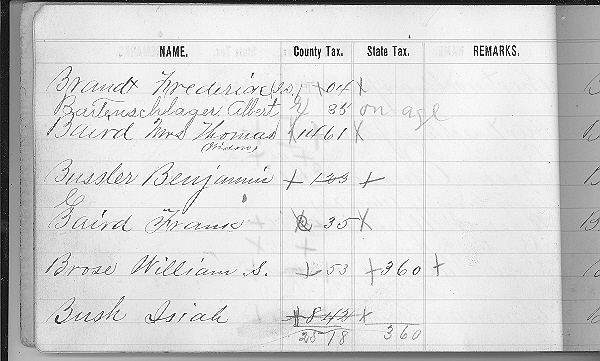 NAME. County Tax. State Tax. REMARKS.
Brandt Frederick 04
Bartenschlager Albert 35 on age
Baird Mrs Thomas 1461
(Widow)
Bussler Benjamin 123
Baird Frank 35
Brose William S. 53 360
Bush Isiah 842
2518 360